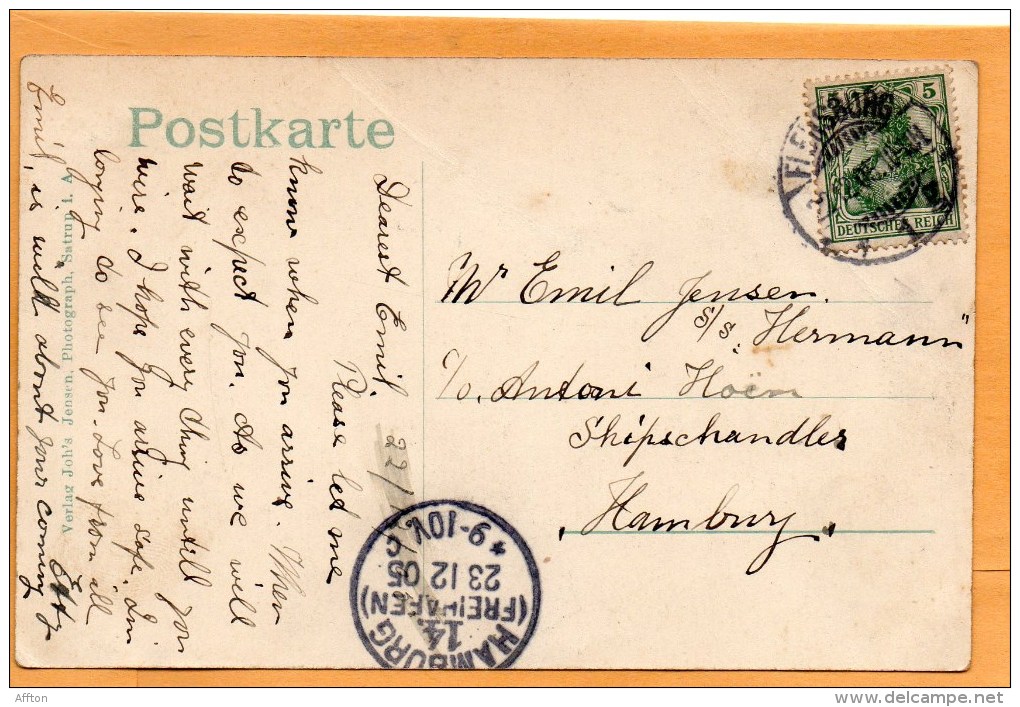 Postkarte
5 5
FLENSBURG
DEUTSCHES REICH
Mr Emil Jensen.
s/s. "Hermann"
c/o. Antoni Hoën
Shipschandler
Hamburg.
22/
Dearest Emil,
Please let me
know when you arrive. When
to expect you. As we will
wait with every thing untill you
were. I hope you arrive safe. I'm
longing to see you. Love from all
Emil, is mild about your coming
Etty
HAMBURG
14.
(FREIHAFEN)
23 12 05
* 9-10V.
Verlag Joh's Jensen, Photograph, Satrup i. A.
Affton
delcampe.net